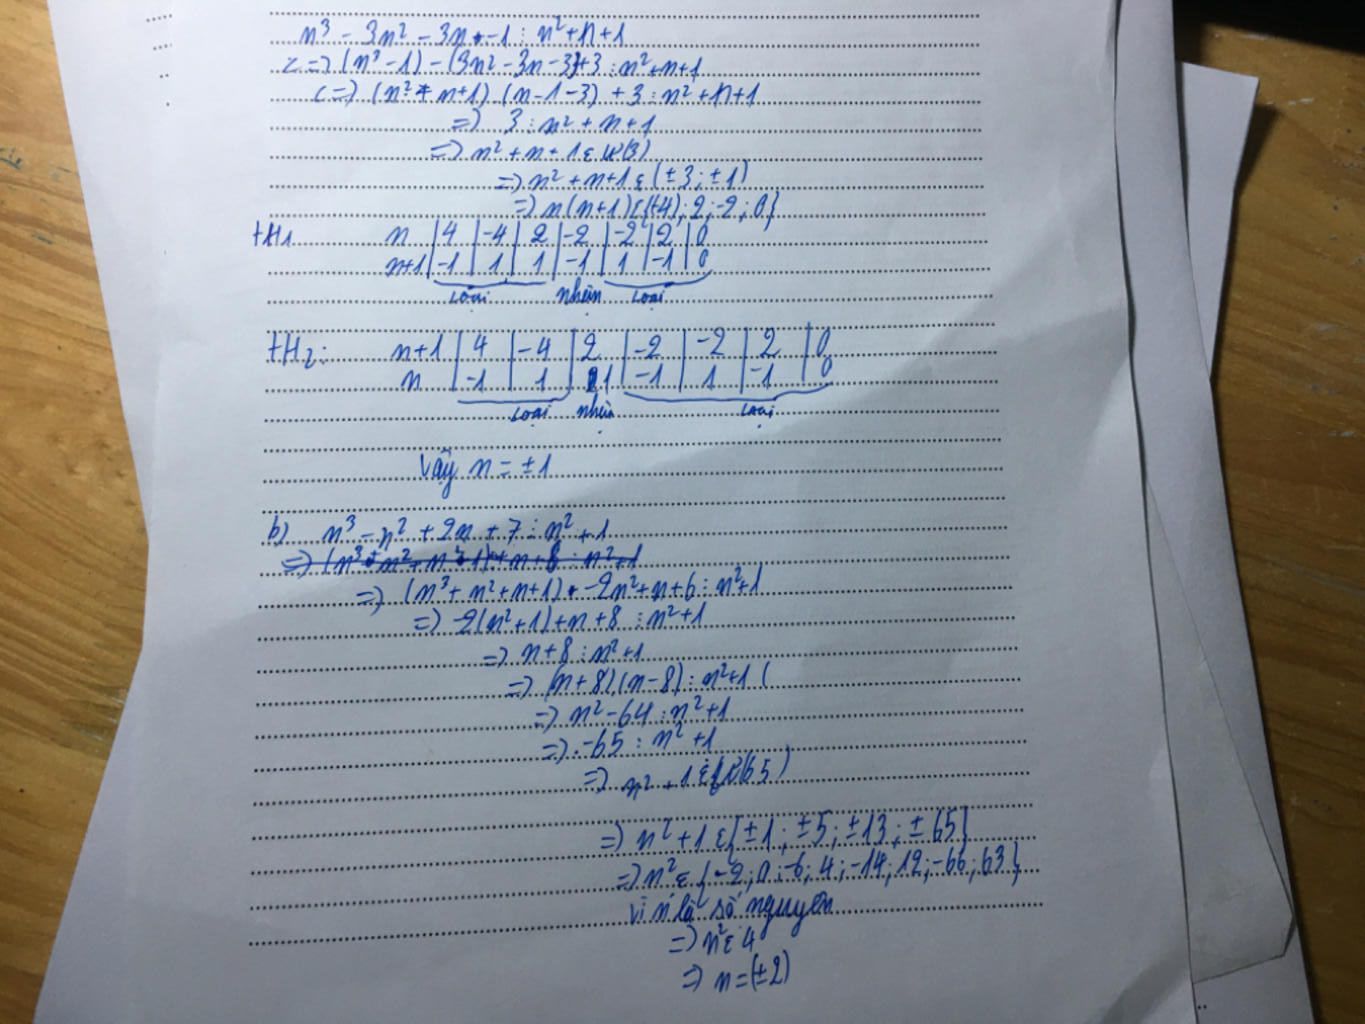 n³ - 3n² - 3n - 1 ⋮ n² + n + 1
<=> (n³ - 1) - (3n² - 3n - 3) + 3 ⋮ n² + n + 1
<=> (n² + n + 1) (n - 1 - 3) + 3 ⋮ n² + n + 1
=> 3 ⋮ n² + n + 1
=> n² + n + 1 ε Ư(3)
=> n² + n + 1 ε (±3 ; ±1)
=> n(n+1) ε {(+4) ; 2 ; -2 ; 0}
TH1 n | 4 | -4 | 2 | -2 | -2 | 2 | 0
n+1 | -1 | 1 | 1 | -1 | 1 | -1 | 0
Loại nhận Loại
TH2: n+1 | 4 | -4 | 2 | -2 | -2 | 2 | 0
n | -1 | 1 | 1 | -1 | 1 | -1 | 0
Loại nhận Loại
Vậy n = ±1
b) n³ - n² + 2n + 7 ⋮ n² + 1
=> (n³ + n² + n + 1) + n + 8 ⋮ n² + 1
=> (n³ + n² + n + 1) - 2n² + n + 6 ⋮ n² + 1
=> -2(n² + 1) + n + 8 ⋮ n² + 1
=> n + 8 ⋮ n² + 1
=> (n + 8) (n - 8) ⋮ n² + 1 (
=> n² - 64 ⋮ n² + 1
=> -65 ⋮ n² + 1
=> n² + 1 ε Ư(65)
=> n² + 1 ε {±1 ; ±5 ; ±13 ; ±65}
=> n² ε {-2 ; 0 ; -6 ; 4 ; -14 ; 12 ; -66 ; 63}
vì n là số nguyên
=> n² ε 4
=> n = (±2)